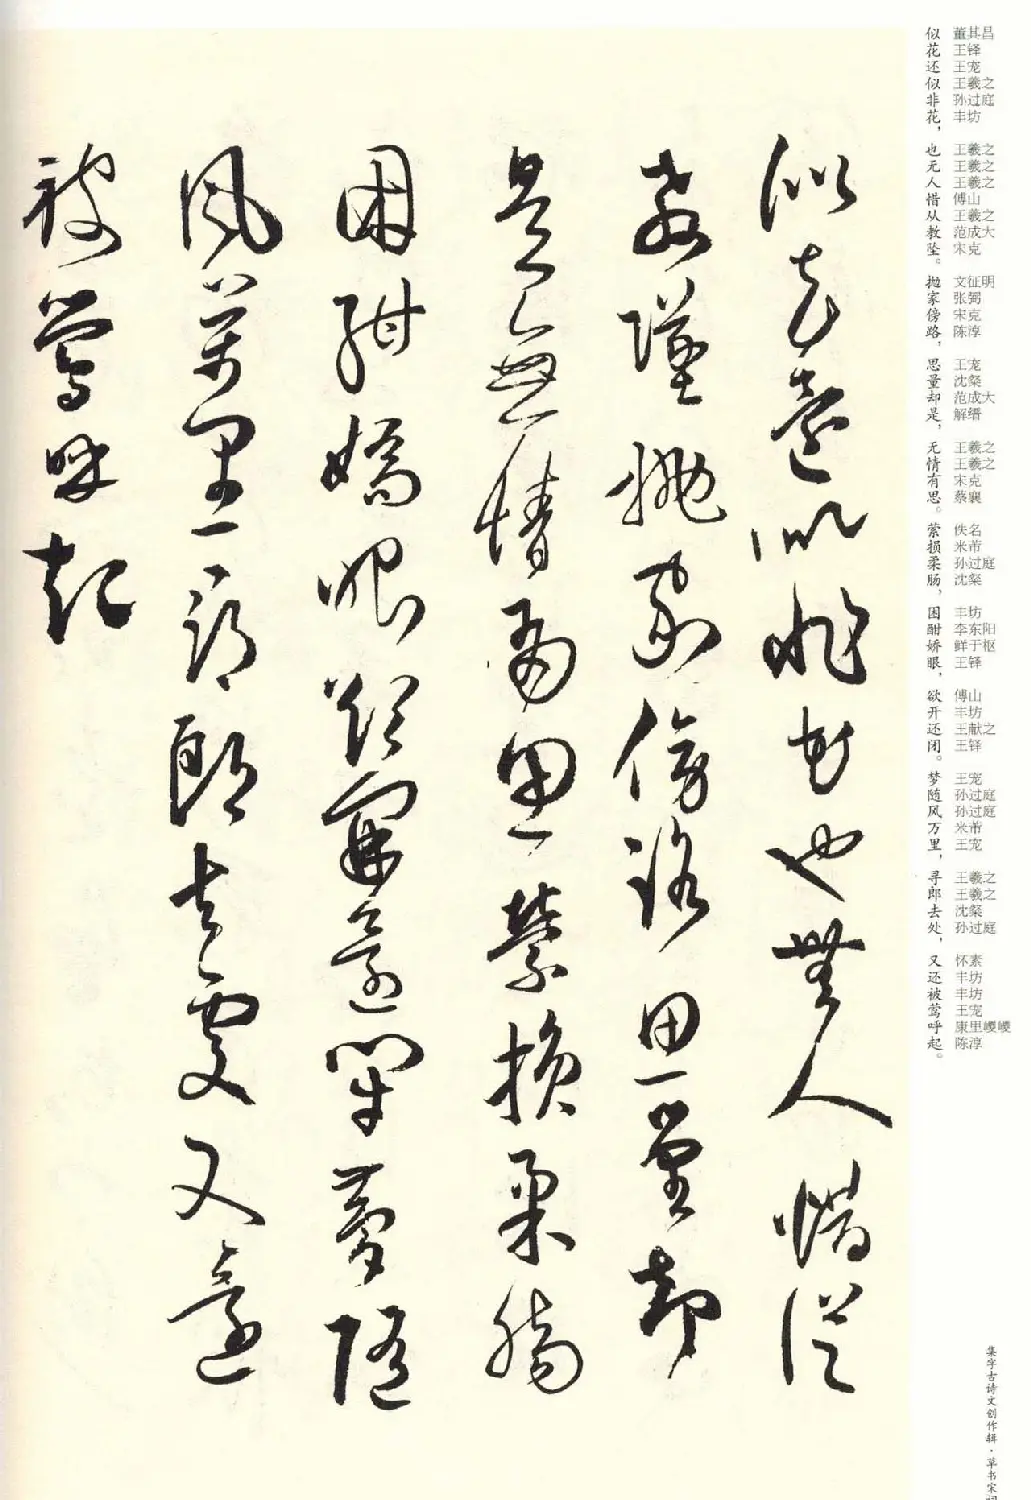 董其昌
王铎
王宠
王羲之
孙过庭
丰坊
王羲之
王羲之
王羲之
傅山
王羲之
范成大
宋克
文征明
张弼
宋克
陈淳
王宠
沈粲
范成大
解缙
王羲之
王羲之
宋克
蔡襄
佚名
米芾
孙过庭
沈粲
丰坊
李东阳
鲜于枢
王铎
傅山
丰坊
王献之
王铎
王宠
孙过庭
孙过庭
米芾
王宠
王羲之
王羲之
沈粲
孙过庭
怀素
丰坊
丰坊
王宠
康里巎巎
陈淳
似花还似非花，也无人惜从教坠。抛家傍路，思量却是，无情有思。萦损柔肠，困酣娇眼，欲开还闭。梦随风万里，寻郎去处，又还被莺呼起。
似花還似非花也無人惜從
教墜拋家傍路思量却
是無情有思縈損柔腸
困酣嬌眼欲開還閉夢隨
風萬里尋郎去處又還
被鶯呼起
集字古诗文创作辑·草书宋词